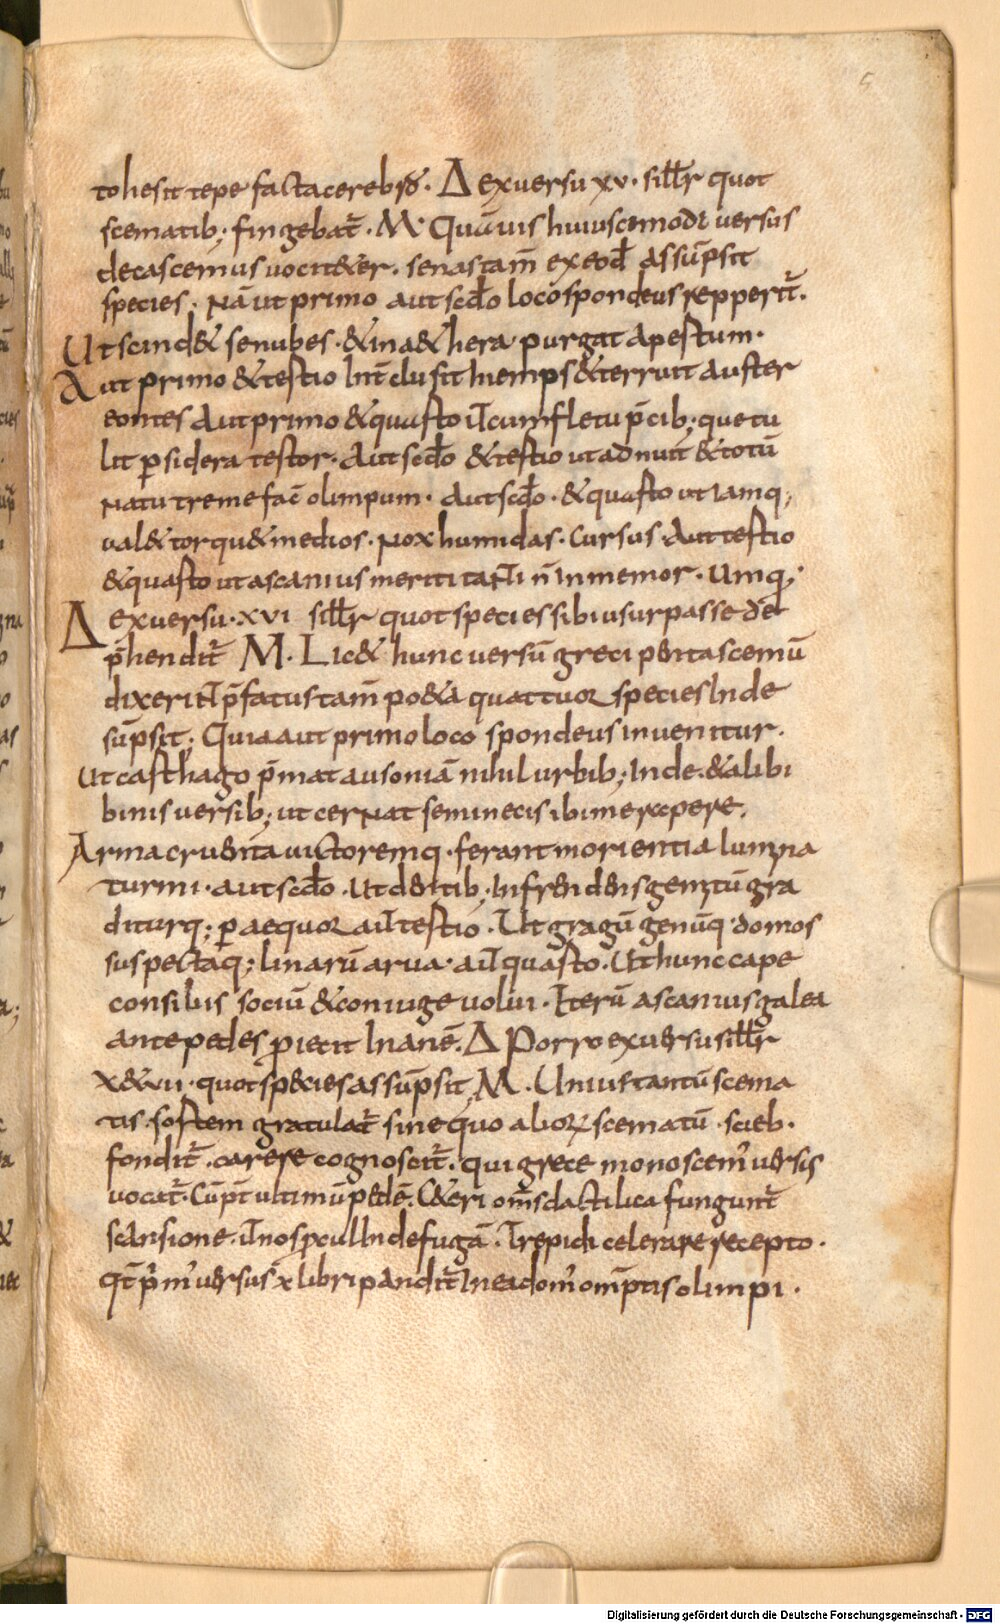 5
to hesit tepe facta cerebro. Δ ex versu xv. sillr quot
scematib; fingebat̄. M. Quāvis huiuscemodi versus
decascemus vocit&er. senas tam̄ ex eod assūpsit
species. Nā ut primo aut scdo loco spondeus repperit̄.
Ut scind& se nubes. & in a&hera purgat apestum.
Aut primo & testio Int clusit hiemps & terruit auster
eontes aut primo & quasto ił cum fletu p̄cib; que tu
lit p sidera testor. aut scdo & testio ut adnuit & totū
natu tremefac̄ olimpum. aut scdo. & quasto ut Iamq;
val& torqu& medios. Nox humidas. Cursus. Aut testio
& quasto ut ascanius meriti tanti n̄ Inmemor. Umq;
Δ ex versu. xvi sillr quot species sibi usurpasse de
p̄hendit̄ M. Lic& hunc versū greci pentascemū
dixerint p̄fatus tam̄ po&a quattuor species Inde
sūpsit; Quia aut primo loco spondeus invenitur.
Ut casthago p̄mat ausoniā nihil urbib; Inde. & alibi
binis versib; ut cernat seminecis ibi me rapere.
Arma cruenta victoremq. ferant morientia lumina
turni. aut scdo. Ut dentib; Infrendens gemitū gra
diturq; p aequor aut testio. Ut gragū genūq. domos
suspectaq; linarū arva. aut quasto. Ut hunc cape
consiliis sociū & coniuge volui. Iterū ascanius galea
ante pedes proiecit Inanē. Δ Porro ex versu sillr
x&vii. quot species assūpsit M. Unius tantū scema
tis. sostem gratulat̄ sine quo alior̄ scematū. scieb.
fondit̄. carere cognoscit̄. qui grece monoscem' versis
vocat̄. Cūpt ultimū pedē. C&eri om̄s dactilica fungunt̄
scansione. ił nos procul Inde fugā. Trepidi celerare recepto.
Qt̄ pr̄m' versus x libri pandit̄ Inea dom' om̄ptis olimpi.
Digitalisierung gefördert durch die Deutsche Forschungsgemeinschaft - DFG